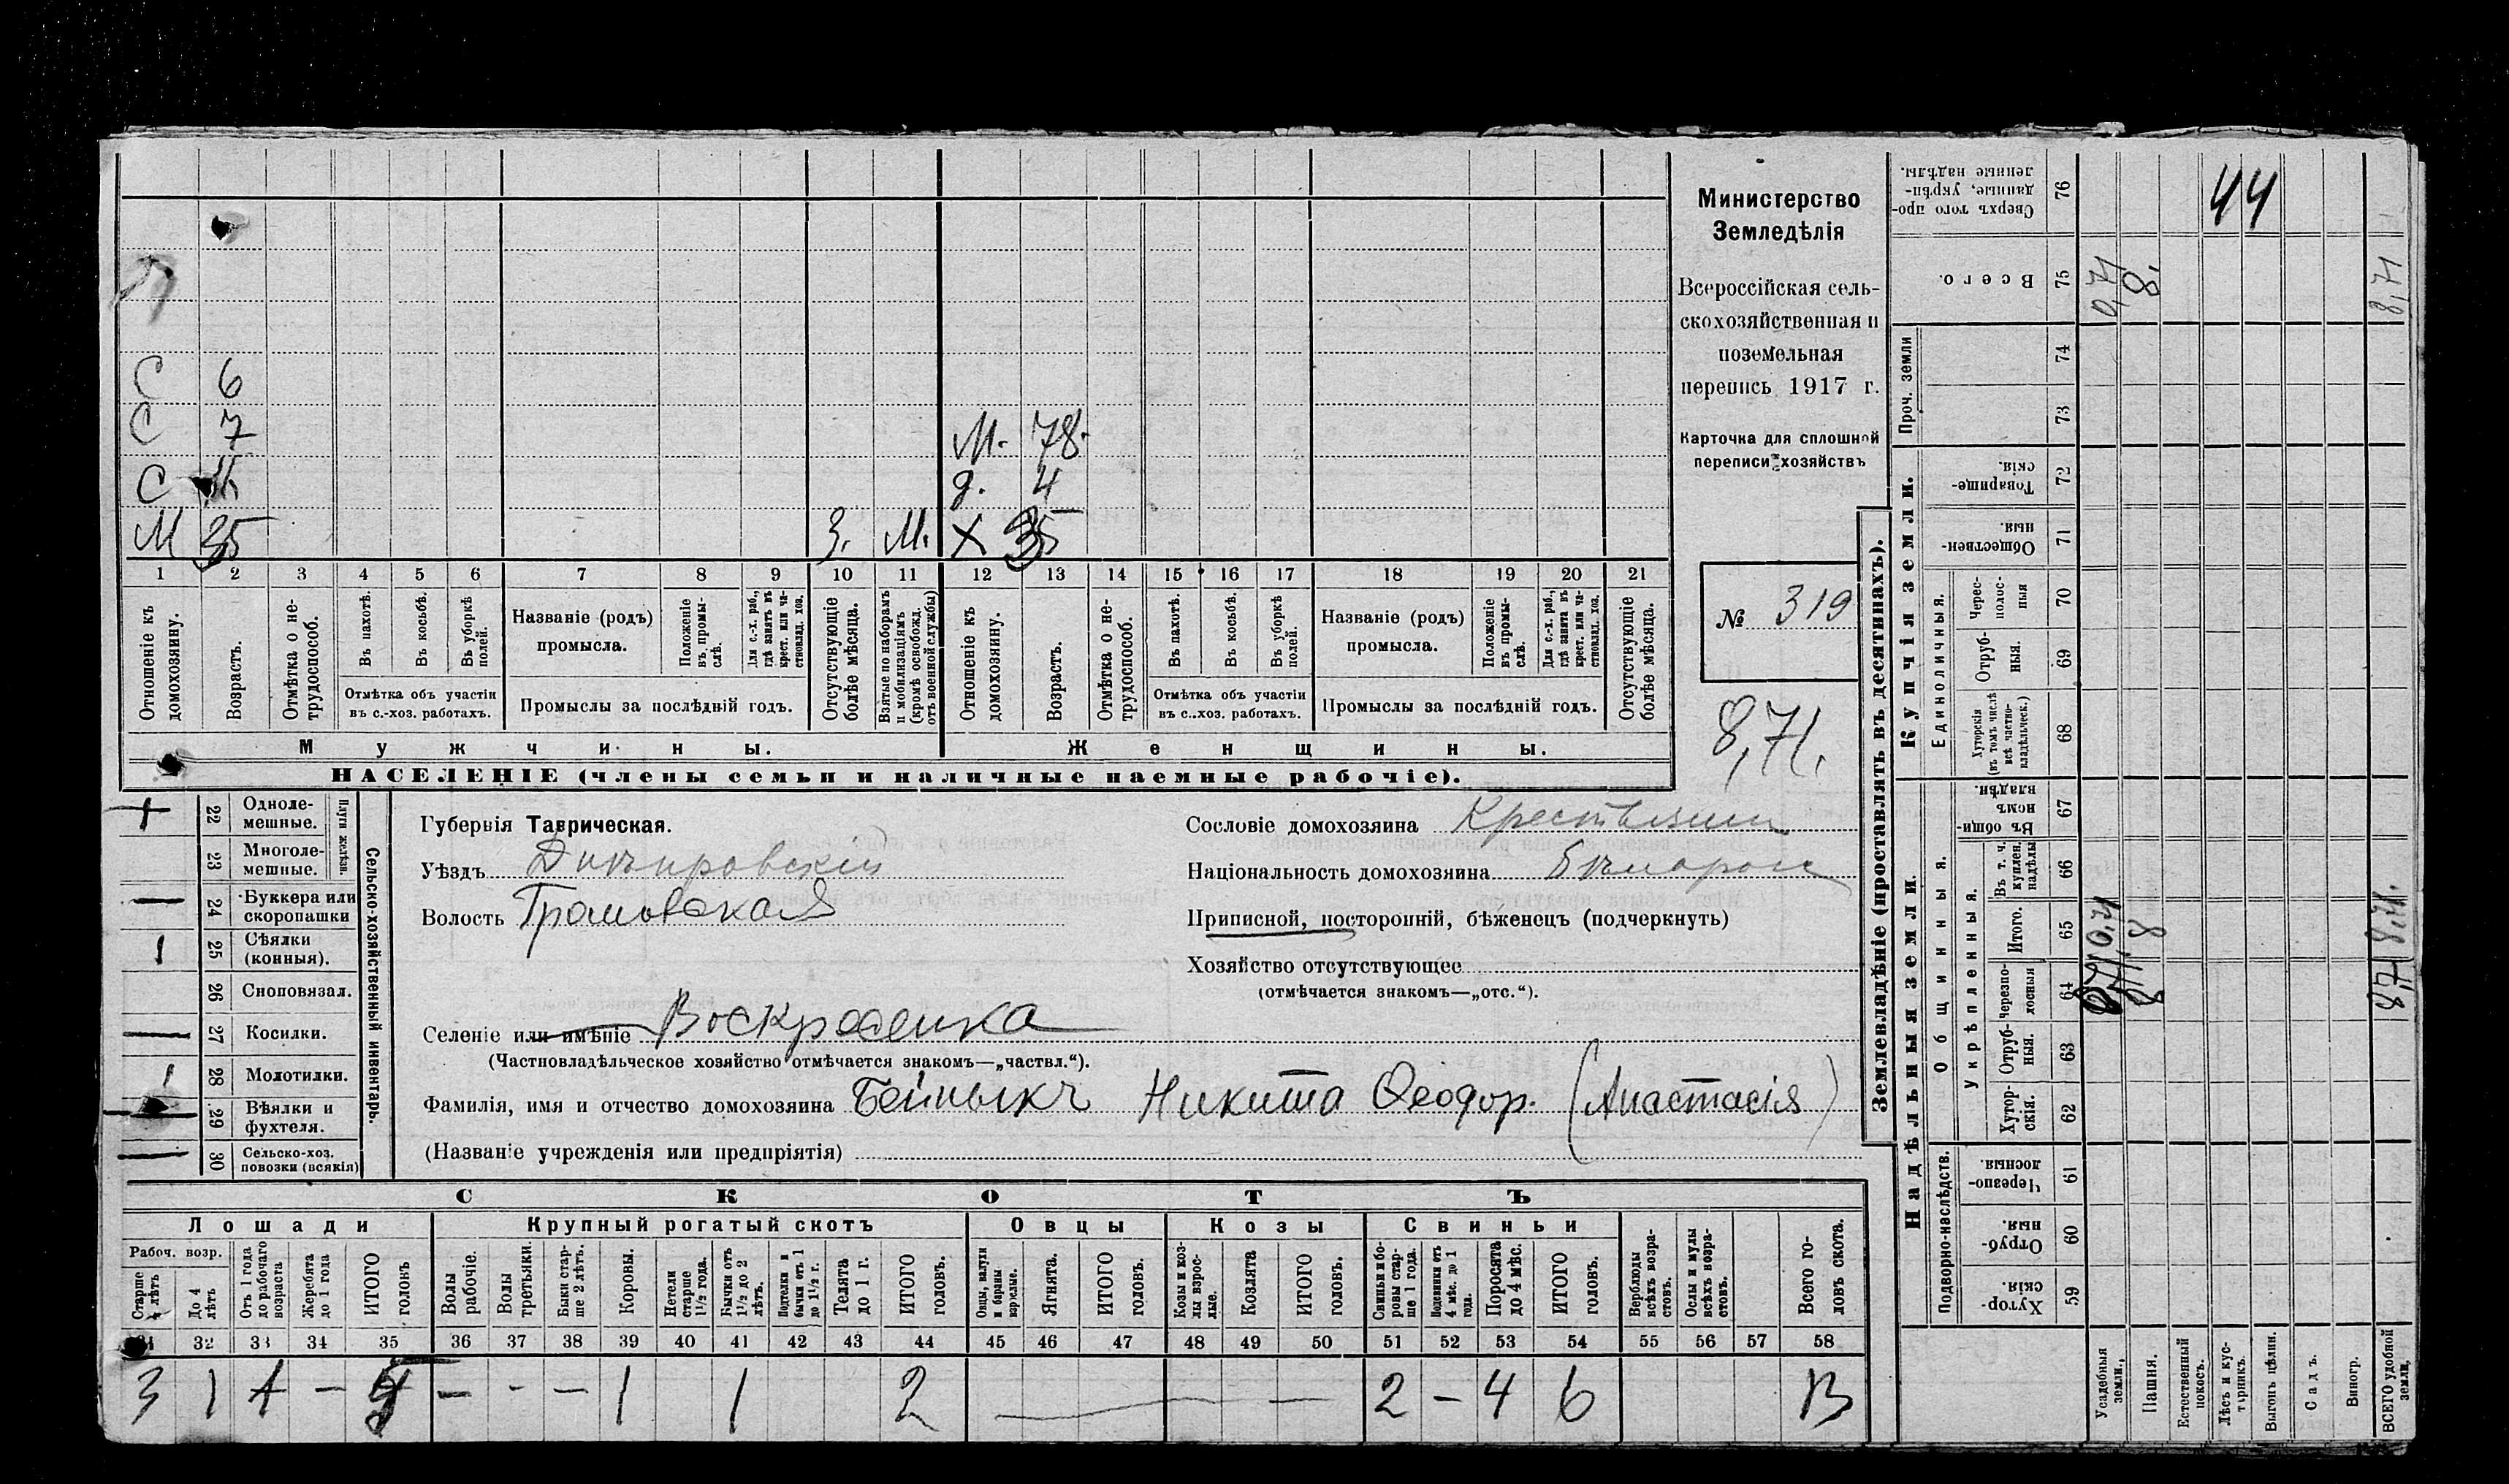 С 6
С 7 М. 78.
С д. 4
М 35 З. М. Х 35
1 2 3 4 5 6 7 8 9 10 11 12 13 14 15 16 17 18 19 20 21
Отношеніе къ домохозяину.
Возрастъ.
Отмѣтка о не-
трудоспособ.
Въ пахотѣ.
Въ косьбѣ.
Въ уборкѣ полей.
Отмѣтка объ участіи
въ с.-хоз. работахъ.
Названіе (родъ)
промысла.
Положеніе въ промы-
слѣ.
Для с.-х. раб., гдѣ занятъ въ крест. или ча-
стновлад. хоз.
Промыслы за послѣдній годъ.
Отсутствующіе болѣе мѣсяца.
Взятые по наборамъ и мобилизаціямъ (кромѣ освобожд. отъ военной службы)
Отношеніе къ домохозяину.
Возрастъ.
Отмѣтка о не-
трудоспособ.
Въ пахотѣ.
Въ косьбѣ.
Въ уборкѣ полей.
Отмѣтка объ участіи
въ с.-хоз. работахъ.
Названіе (родъ)
промысла.
Положеніе въ промы-
слѣ.
Для с.-х. раб., гдѣ занятъ въ крест. или ча-
стновлад. хоз.
Промыслы за послѣдній годъ.
Отсутствующіе болѣе мѣсяца.
Мужчины. Женщины.
НАСЕЛЕНІЕ (члены семьи и наличные наемные рабочіе).
Министерство
Земледѣлія
Всероссійская сель-
скохозяйственная и
поземельная
перепись 1917 г.
Карточка для сплошной
переписи хозяйствъ
№ 319
8,71.
Сельско-хозяйственный инвентарь.
Плуги желѣзн.
22 Одноле-
мешные.
23 Многоле-
мешные.
24 Буккера или
скоропашки
25 Сѣялки
(конныя).
26 Сноповязал.
27 Косилки.
28 Молотилки.
29 Вѣялки и
фухтеля.
30 Сельско-хоз.
повозки (всякія)
Губернія Таврическая.
Уѣздъ Днѣпровскій
Волость Громовская
Селеніе или имѣніе Воскресенка
(Частновладѣльческое хозяйство отмѣчается знакомъ—„частвл.“).
Фамилія, имя и отчество домохозяина Никита Ѳеодор. (Анастасія)
(Названіе учрежденія или предпріятія)
Сословіе домохозяина Крестьянин
Національность домохозяина
Приписной, посторонній, бѣженецъ (подчеркнуть)
Хозяйство отсутствующее
(отмѣчается знакомъ—„отс.“).
СКОТЪ
Лошади Крупный рогатый скотъ Овцы Козы Свиньи
Рабоч. возр.
Старше 4 лѣтъ
До 4 лѣтъ
Отъ 1 года до рабочаго возраста
Жеребята до 1 года
ИТОГО головъ
Волы рабочіе.
Волы третьяки.
Быки стар-
ше 2 лѣтъ.
Коровы.
Нетели старше 1½ года.
Бычки отъ 1½ до 2 лѣтъ.
Подтелки и бычки отъ 1 до 1½ г.
Телята до 1 г.
ИТОГО головъ.
Овцы, валухи и бараны взрослые.
Ягнята.
ИТОГО головъ.
Козы и коз-
лы взрос-
лые.
Козлята
ИТОГО головъ.
Свиньи и бо-
ровы стар-
ше 1 года.
Подсвинки отъ 4 мѣс. до 1 года.
Поросята до 4 мѣс.
ИТОГО головъ.
Верблюды всѣхъ возра-
стовъ.
Ослы и мулы всѣхъ возра-
стовъ.
Всего го-
ловъ скота.
31 32 33 34 35 36 37 38 39 40 41 42 43 44 45 46 47 48 49 50 51 52 53 54 55 56 57 58
3 1 — — - — 1 1 2 — — 2 — 4 6 13
Землевладѣніе (проставлять въ десятинахъ).
Купчія земли.
Надѣльныя земли.
Сверхъ того про-
данные, укрѣп-
ленные надѣлы.
76
44
Всего.
75
0,71
8.
8,71
Проч. земли
74
73
Товарище-
скія.
72
Обществен-
ныя.
71
Единоличныя.
Черес-
полос-
ныя
70
Отруб-
ныя.
69
Хуторскія (въ томъ числѣ всѣ частно-
владѣльческ.)
68
Общинныя.
Въ общи-
номъ
владѣн.
67
Укрѣпленныя.
Въ т. ч. куплен. надѣлы
66
Итого.
65
0,71
8
8,71.
Черезпо-
лосныя
64
8
8,71
Отруб-
ныя.
63
Хутор-
скія.
62
Подворно-наслѣдств.
Черезпо-
лосныя.
61
Отруб-
ныя.
60
Хутор-
скія.
59
Усадебныя земли.
Пашня.
Естественный покосъ.
Лѣсъ и кус-
тарникъ.
Выгонъ цѣлин.
Садъ.
Виногр.
ВСЕГО удобной земли.